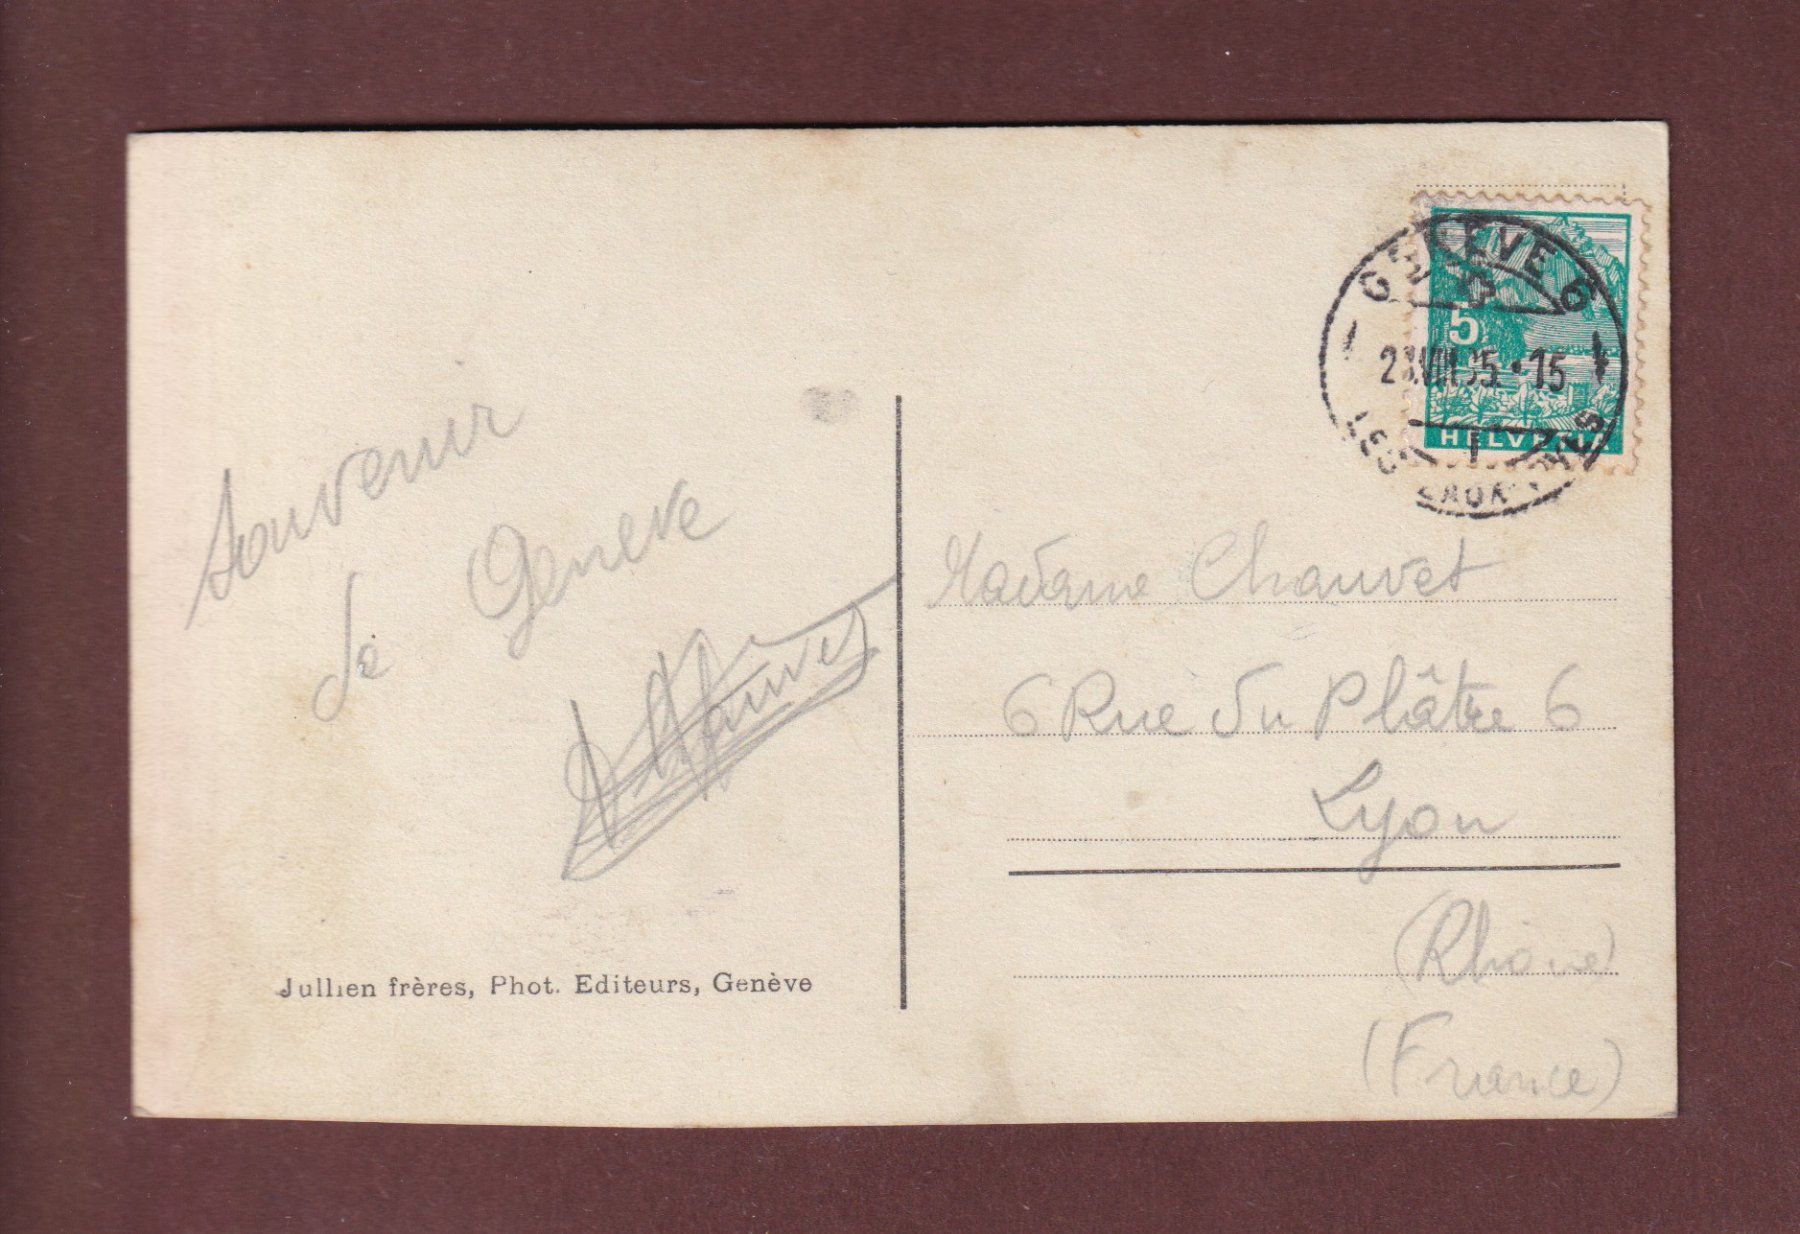 GENÈVE 6
5
VIII.35.-15
HELVETIA
souvenir
de Geneve
Chauvet
Madame Chauvet
6 Rue du Plâtre 6
Lyon
(Rhône)
(France)
Jullien frères, Phot. Editeurs, Genève